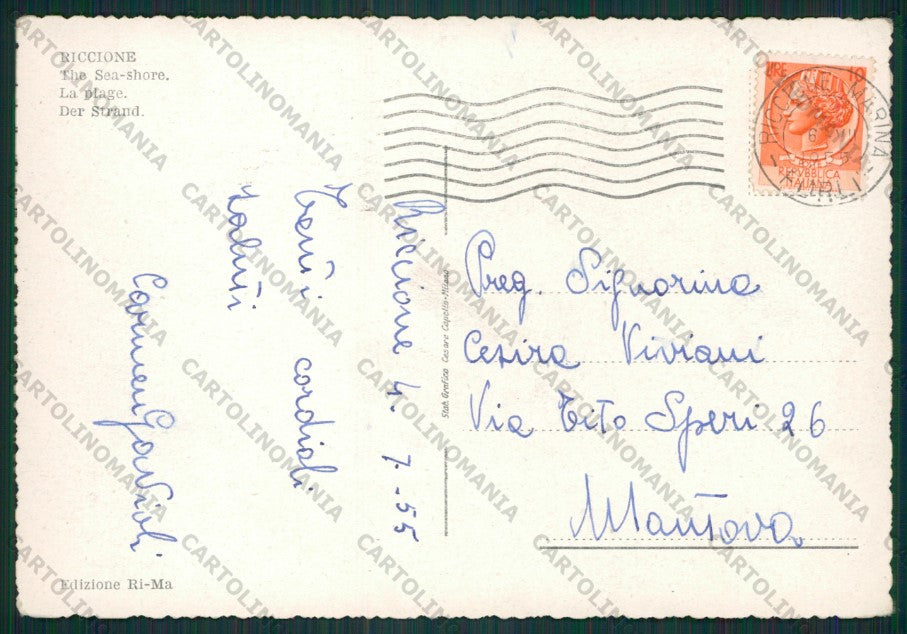 RICCIONE
The Sea-shore.
La plage.
Der Strand.
LIRE 10
REPVBBLICA
ITALIANA
Riccione 4. 7-55
Tanti cordiali
saluti
Carmen Gavioli
Stab. Grafico Cesare Capello-Milano
Preg. Signorina
Cesira Viviani
Via Tito Speri 26
Mantova
Edizione Ri-Ma
CARTOLINOMANIA